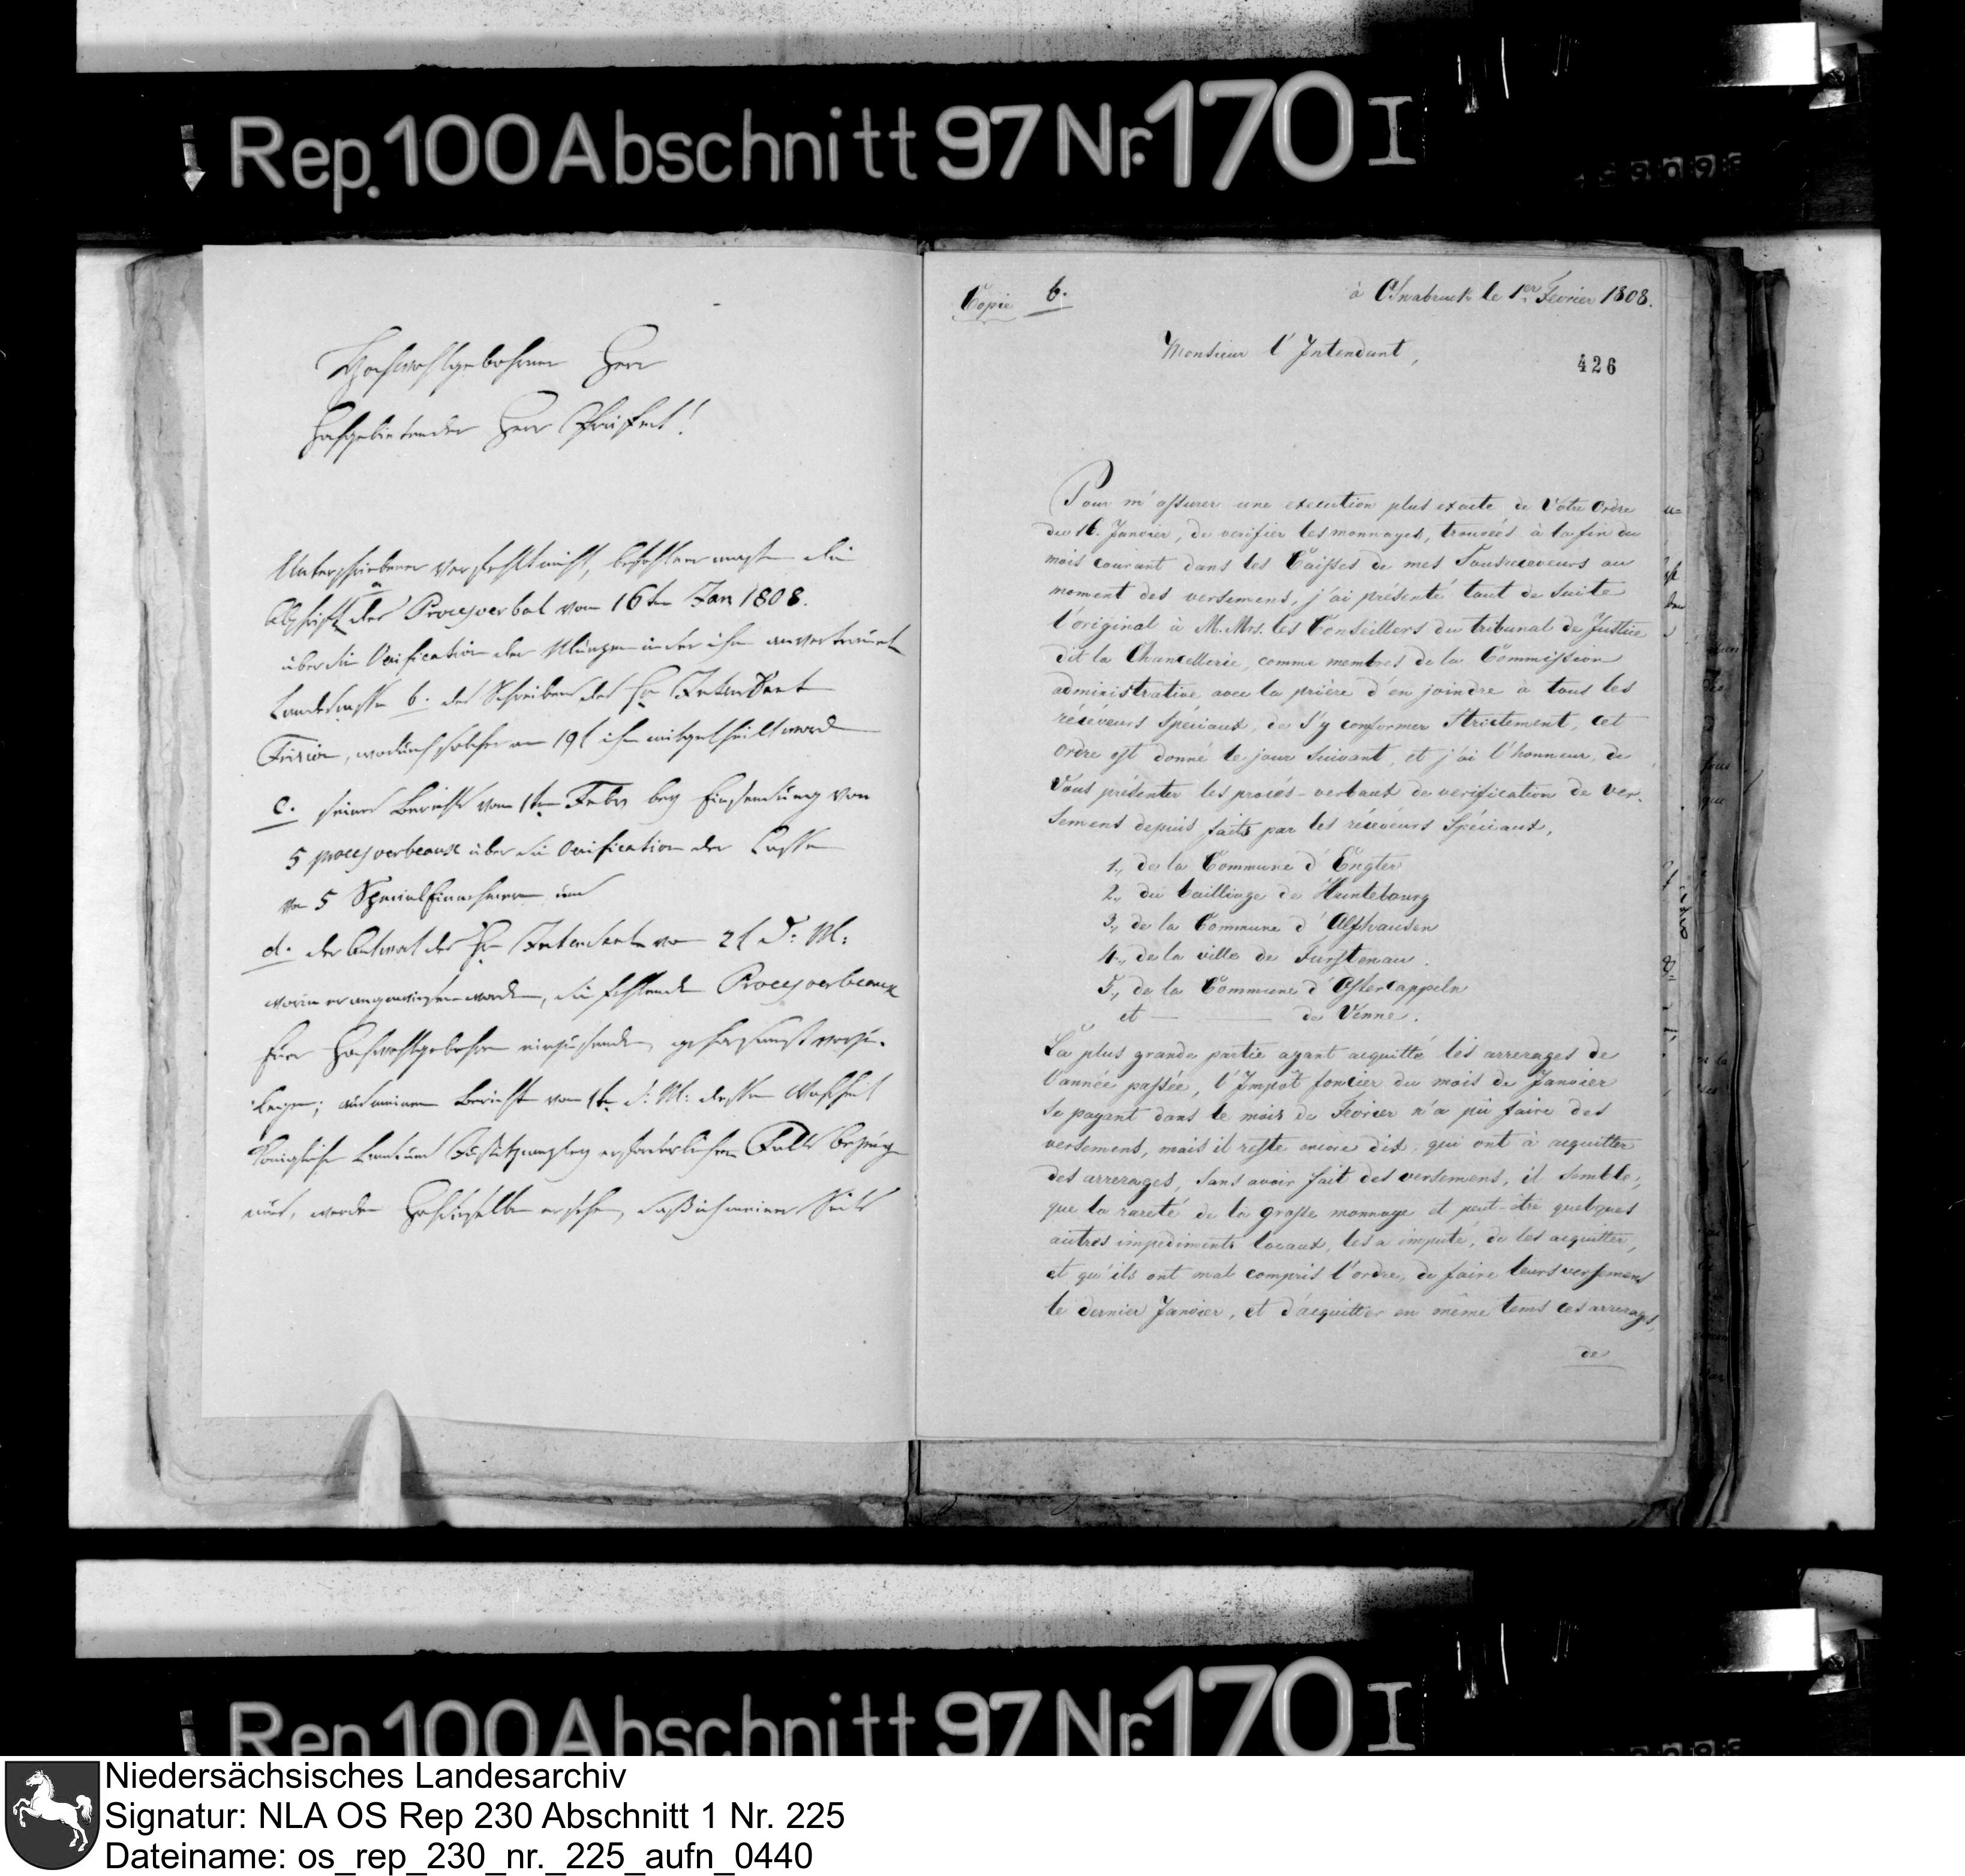 Rep. 100 Abschnitt 97 Nr. 170 I
Hochwohlgebohrner Herr
Hochgebietender Herr Präfect!
Unterschriebener verfehlt nicht, befohlner maßen die
a
Abschrift des Procesverbal vom 16ten Jan 1808.
über die Verification der Münzen in der ihm anvertrauet
Landescasse b. des Schreibens des H Intendant
wodurch solches am 19t ihm mitgetheilt word
c. seines Berichts vom 1ten Febr bey Einsendung von
5 procesverbeaux über die Verification der Casse
von 5 Special Einnehmern und
d. der Antwort des H Intendant vom 2t d. M:
worin er angewiesen worden, die fehlende Procesverbeaux
Euer Hochwohlgebohrn einzusenden, gehorsamst vorzu-
legen; aus meinem Bericht vom 1t d. M: dessen Wahrheit
Königliche Land und Justitzcanzley erforderlichen Falls bezeuge
wird, werden Hochdieselben ersehen, daß ich meiner Seits
Copie b. à Osnabruck le 1er Fevrier 1808.
Monsieur l'Intendant,
426
Pour m'assurer une execution plus exacte de Votre Ordre
du 16. Janvier, de verifier les monnayes, trouvées à la fin du
mois courant dans les Caisses de mes Sousreceveurs au
moment des versemens, j'ai présenté tout de suite
l'original à M. Mrs. les Conseillers du tribunal de Justice
dit la Chancellerie, comme membres de la Commission
administrative avec la prière d'en joindre à tous les
récéveurs spéciaux, de s'y conformer strictement, cet
ordre est donné le jour suivant, et j'ai l'honneur, de
Vous présenter les procés-verbaux de verification de ver-
sement depuis faits par les récéveurs spéciaux,
1., de la Commune d'Engter
2., du bailliage de Huntebourg
3., de la Commune d'Alfhausen
4., de la ville de Furstenau.
5., de la Commune d'Ostercappeln
et — — de Venne.
La plus grande partie ayant acquitté les arrerages de
l'année passée, l'Impôt foncier du mois de Janvier
se payant dans le mois de Fevrier n'a pû faire des
versemens, mais il reste encore dix, qui ont à acquitter
des arrerages, sans avoir fait des versemens, il semble,
que la rareté de la grosse monnaye et peut-etre quelques
autres impediments locaux, les a imputé, de les acquitter,
et qu'ils ont mal compris l'ordre, de faire leurs versemens
le dernier Janvier, et d'acquitter en même tems ces arrerages,
de
Rep. 100 Abschnitt 97 Nr. 170 I
Niedersächsisches Landesarchiv
Signatur: NLA OS Rep 230 Abschnitt 1 Nr. 225
Dateiname: os_rep_230_nr._225_aufn_0440